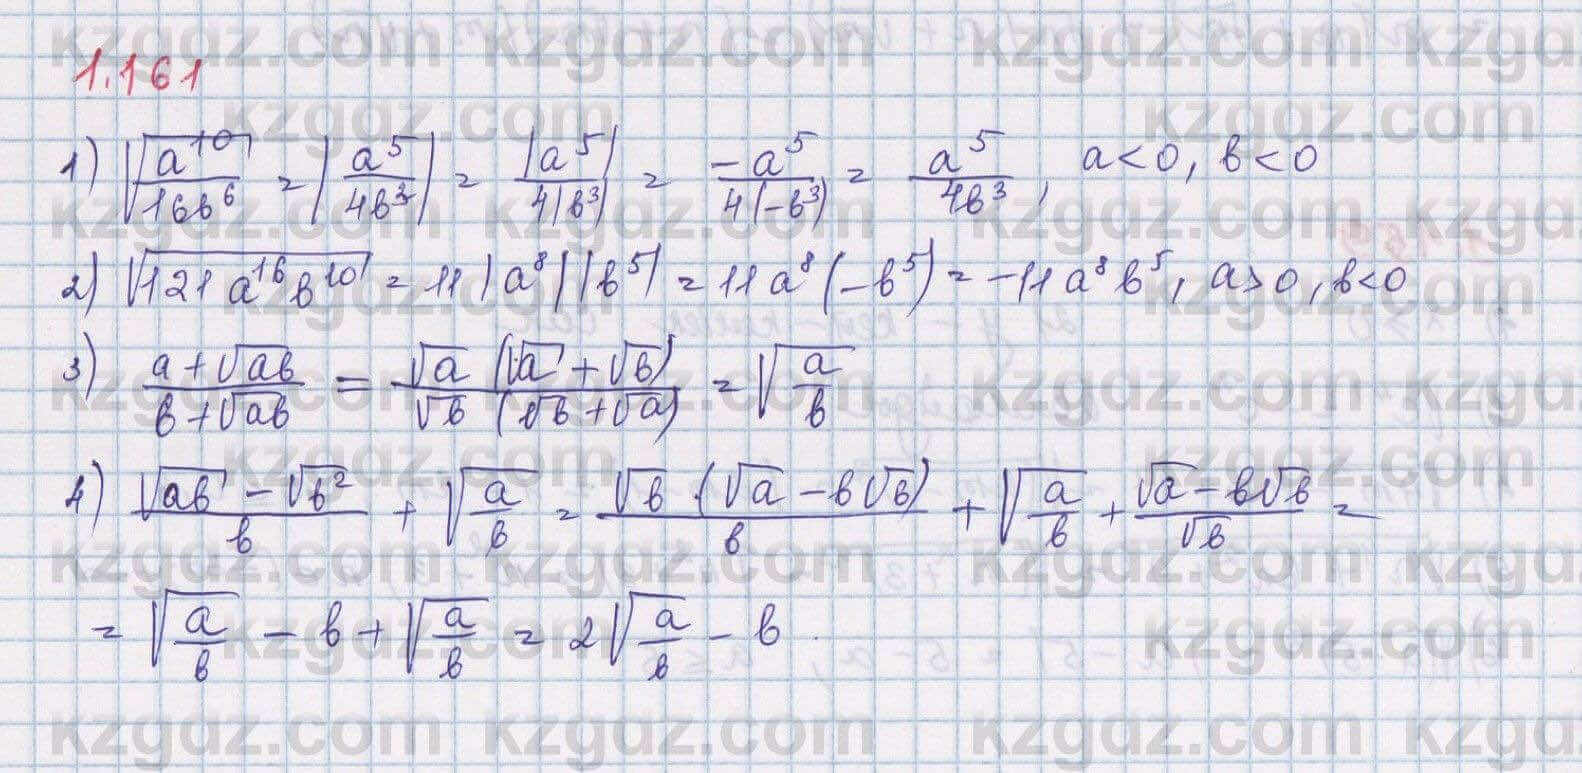 1.161
1) √(a^10/16b^6) = |a^5/4b^3| = |a^5|/4|b^3| = -a^5/4(-b^3) = a^5/4b^3, a<0, b<0
2) √(121a^16b^10) = 11|a^8||b^5| = 11a^8(-b^5) = -11a^8b^5, a>0, b<0
3) (a+√ab)/(b+√ab) = √a(√a+√b)/√b(√b+√a) = √(a/b)
4) (√ab-√b^2)/b + √(a/b) = √b·(√a-b√b)/b + √(a/b) + (√a-b√b)/√b =
= √(a/b) - b + √(a/b) = 2√(a/b) - b.
kzgdz.com